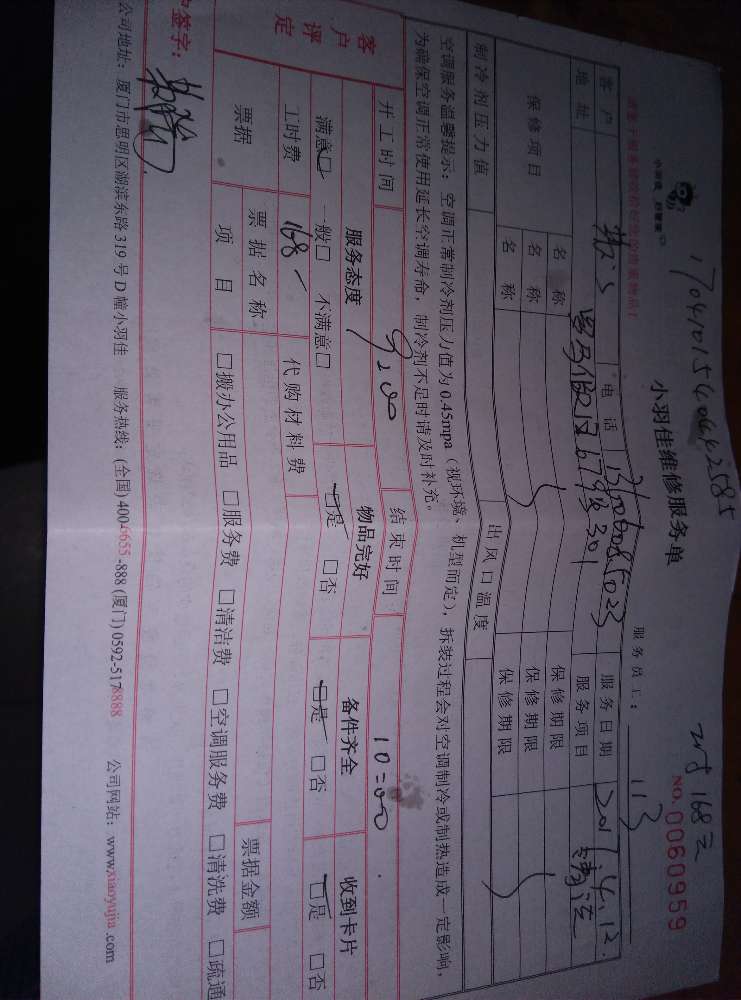 小羽佳维修服务单
NO. 0060959
168元
服务员工： 113
客户 电话 服务日期 2017.4.12.
地址 67号301 服务项目 清洗
保修项目 名称 保修期限
名称 保修期限
名称 保修期限
制冷剂压力值 出风口温度
空调服务温馨提示：空调正常制冷剂压力值为0.45mpa（视环境、机型而定），拆装过程会对空调制冷或制热造成一定影响，
为确保空调正常使用延长空调寿命，制冷剂不足时请及时补充。
开工时间 9:00 结束时间 10:00
客户评定 服务态度 物品完好 备件齐全 收到卡片
满意☑ 一般□ 不满意□ ☑是 □否 ☑是 □否 ☑是 □否
工时费 168 代购材料费
票据 票据名称 票据金额
项目 □搬办公用品 □服务费 □清洁费 □空调服务费 □清洗费 □疏通
签字：
公司地址：厦门市思明区湖滨东路319号D幢小羽佳 服务热线：(全国) 400-6655-888 (厦门) 0592-5178888 公司网站：www.xiaoyujia.com